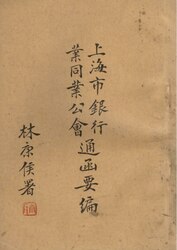 上海市銀行
業同業公會通函要編
林康侯署